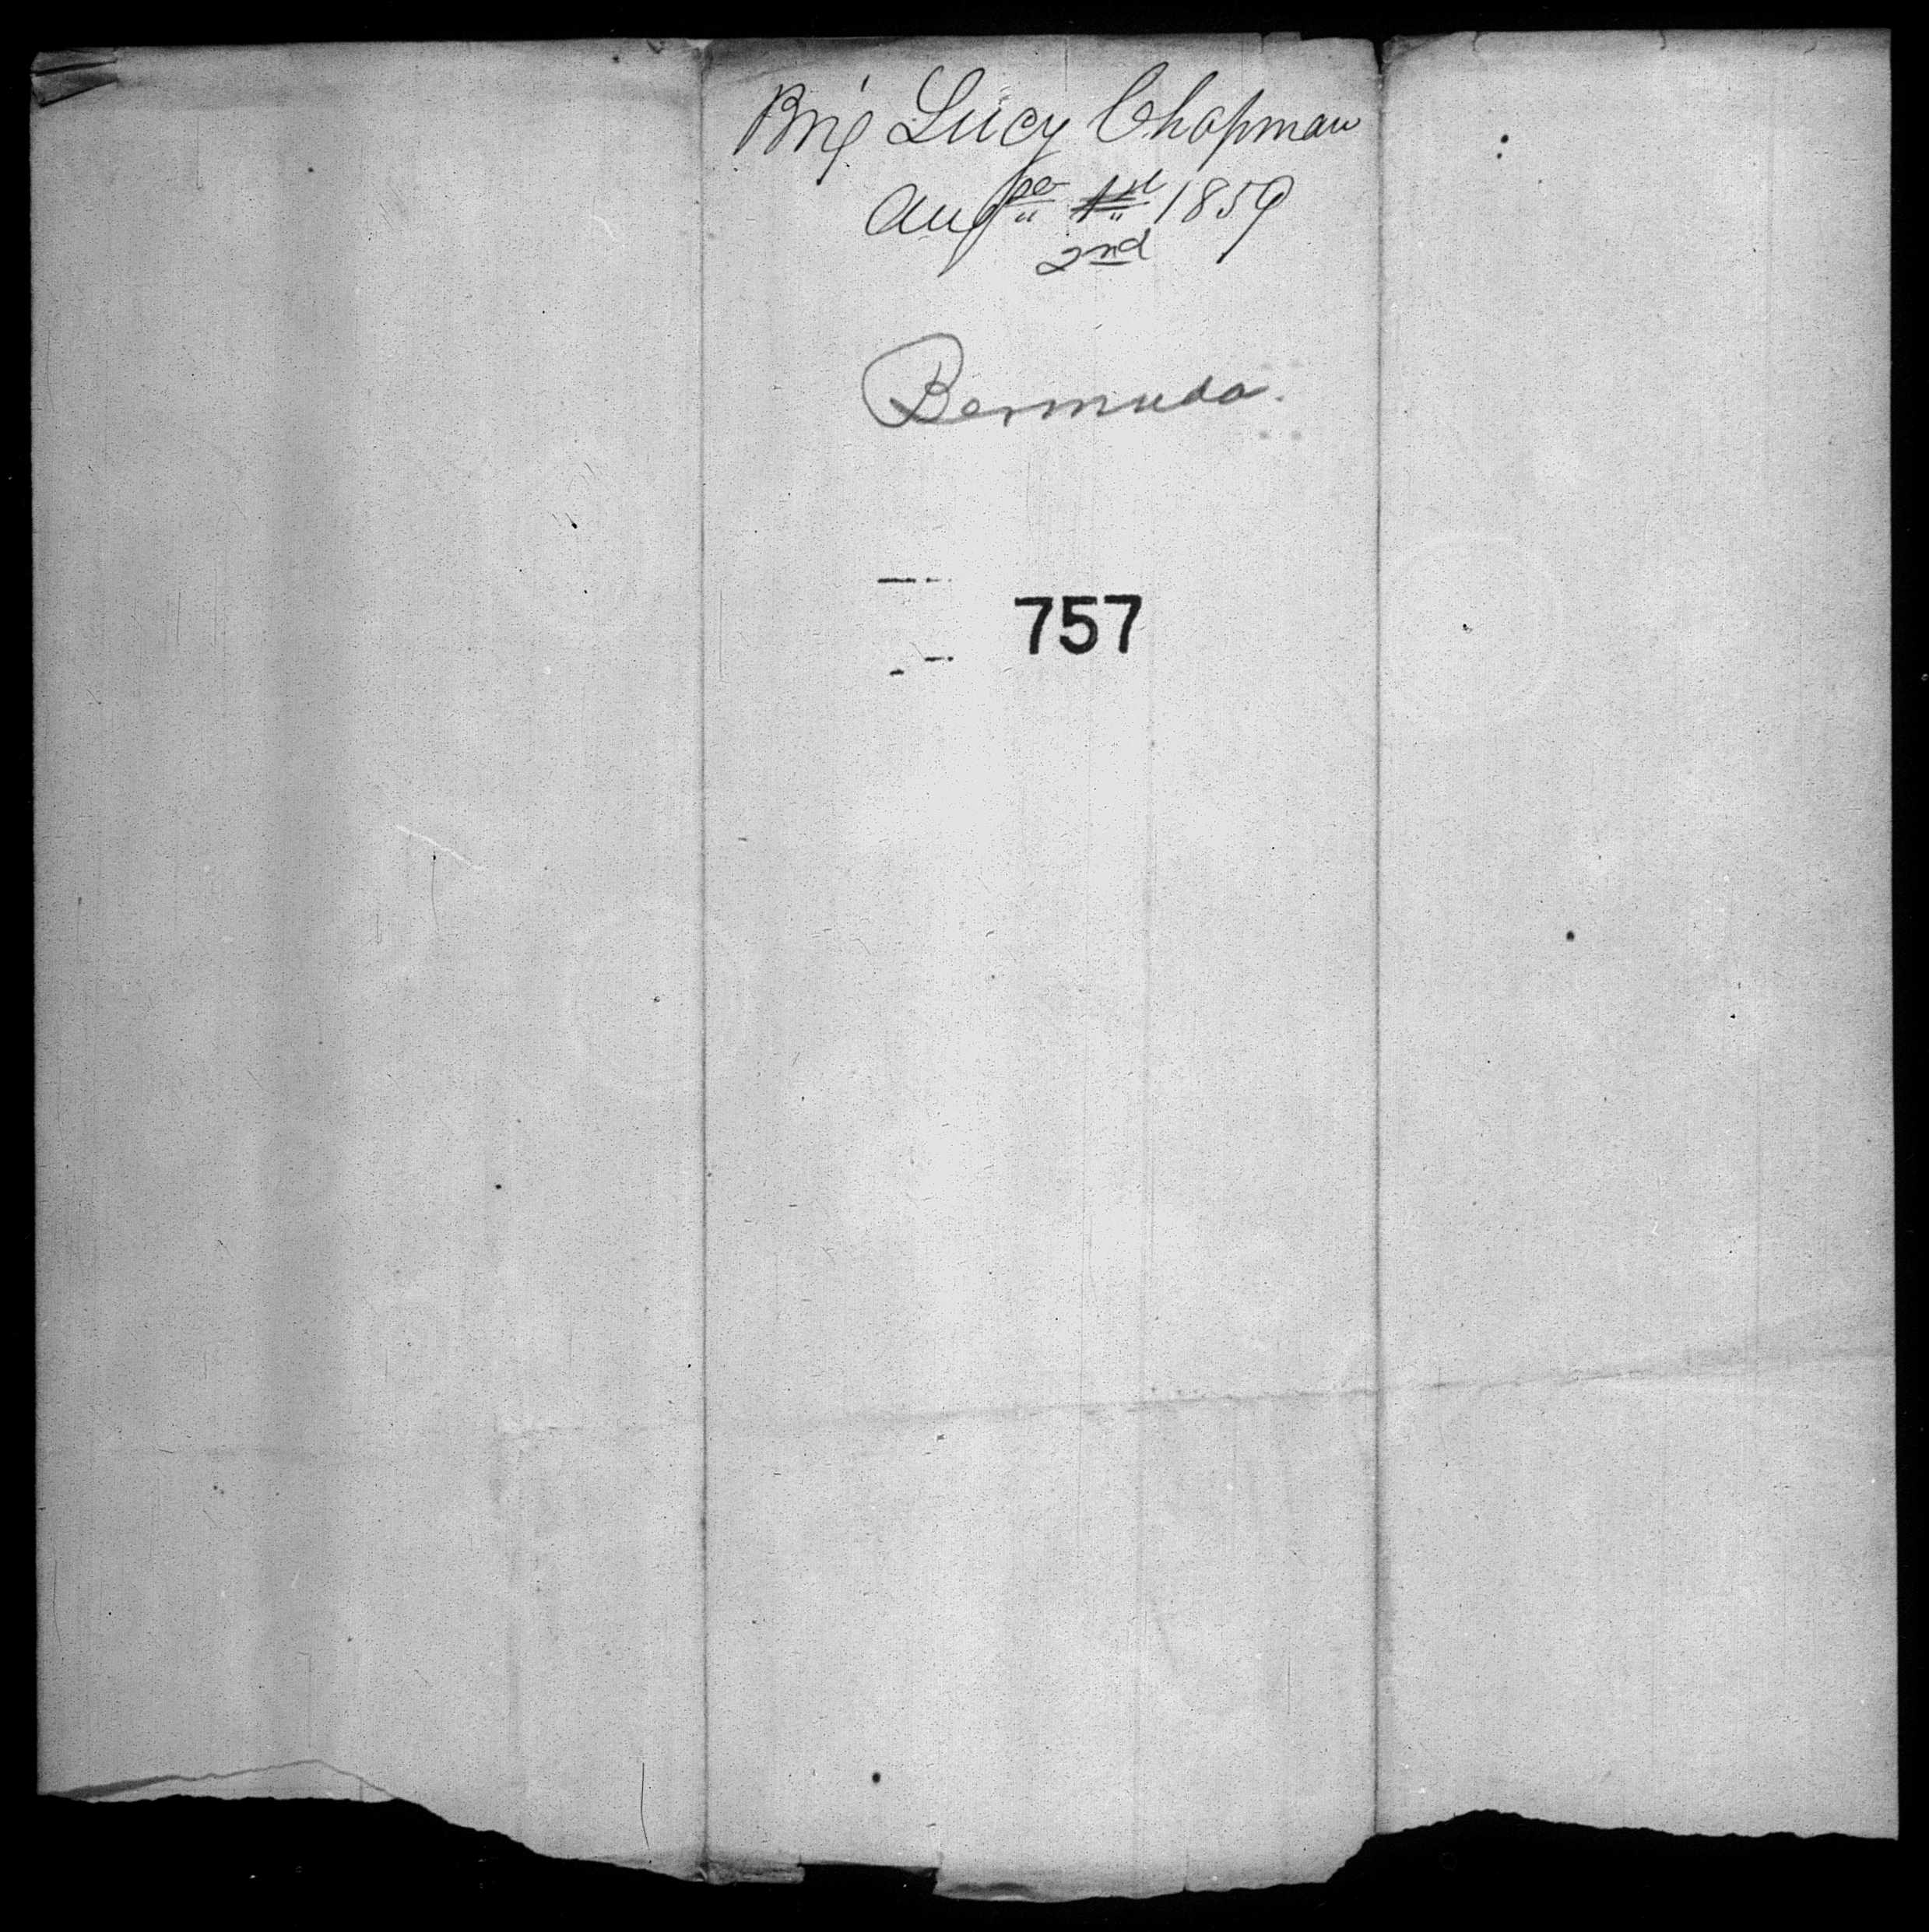 Brig Lucy Chapman
Aug 1st 1859
2nd
Bermuda.
757